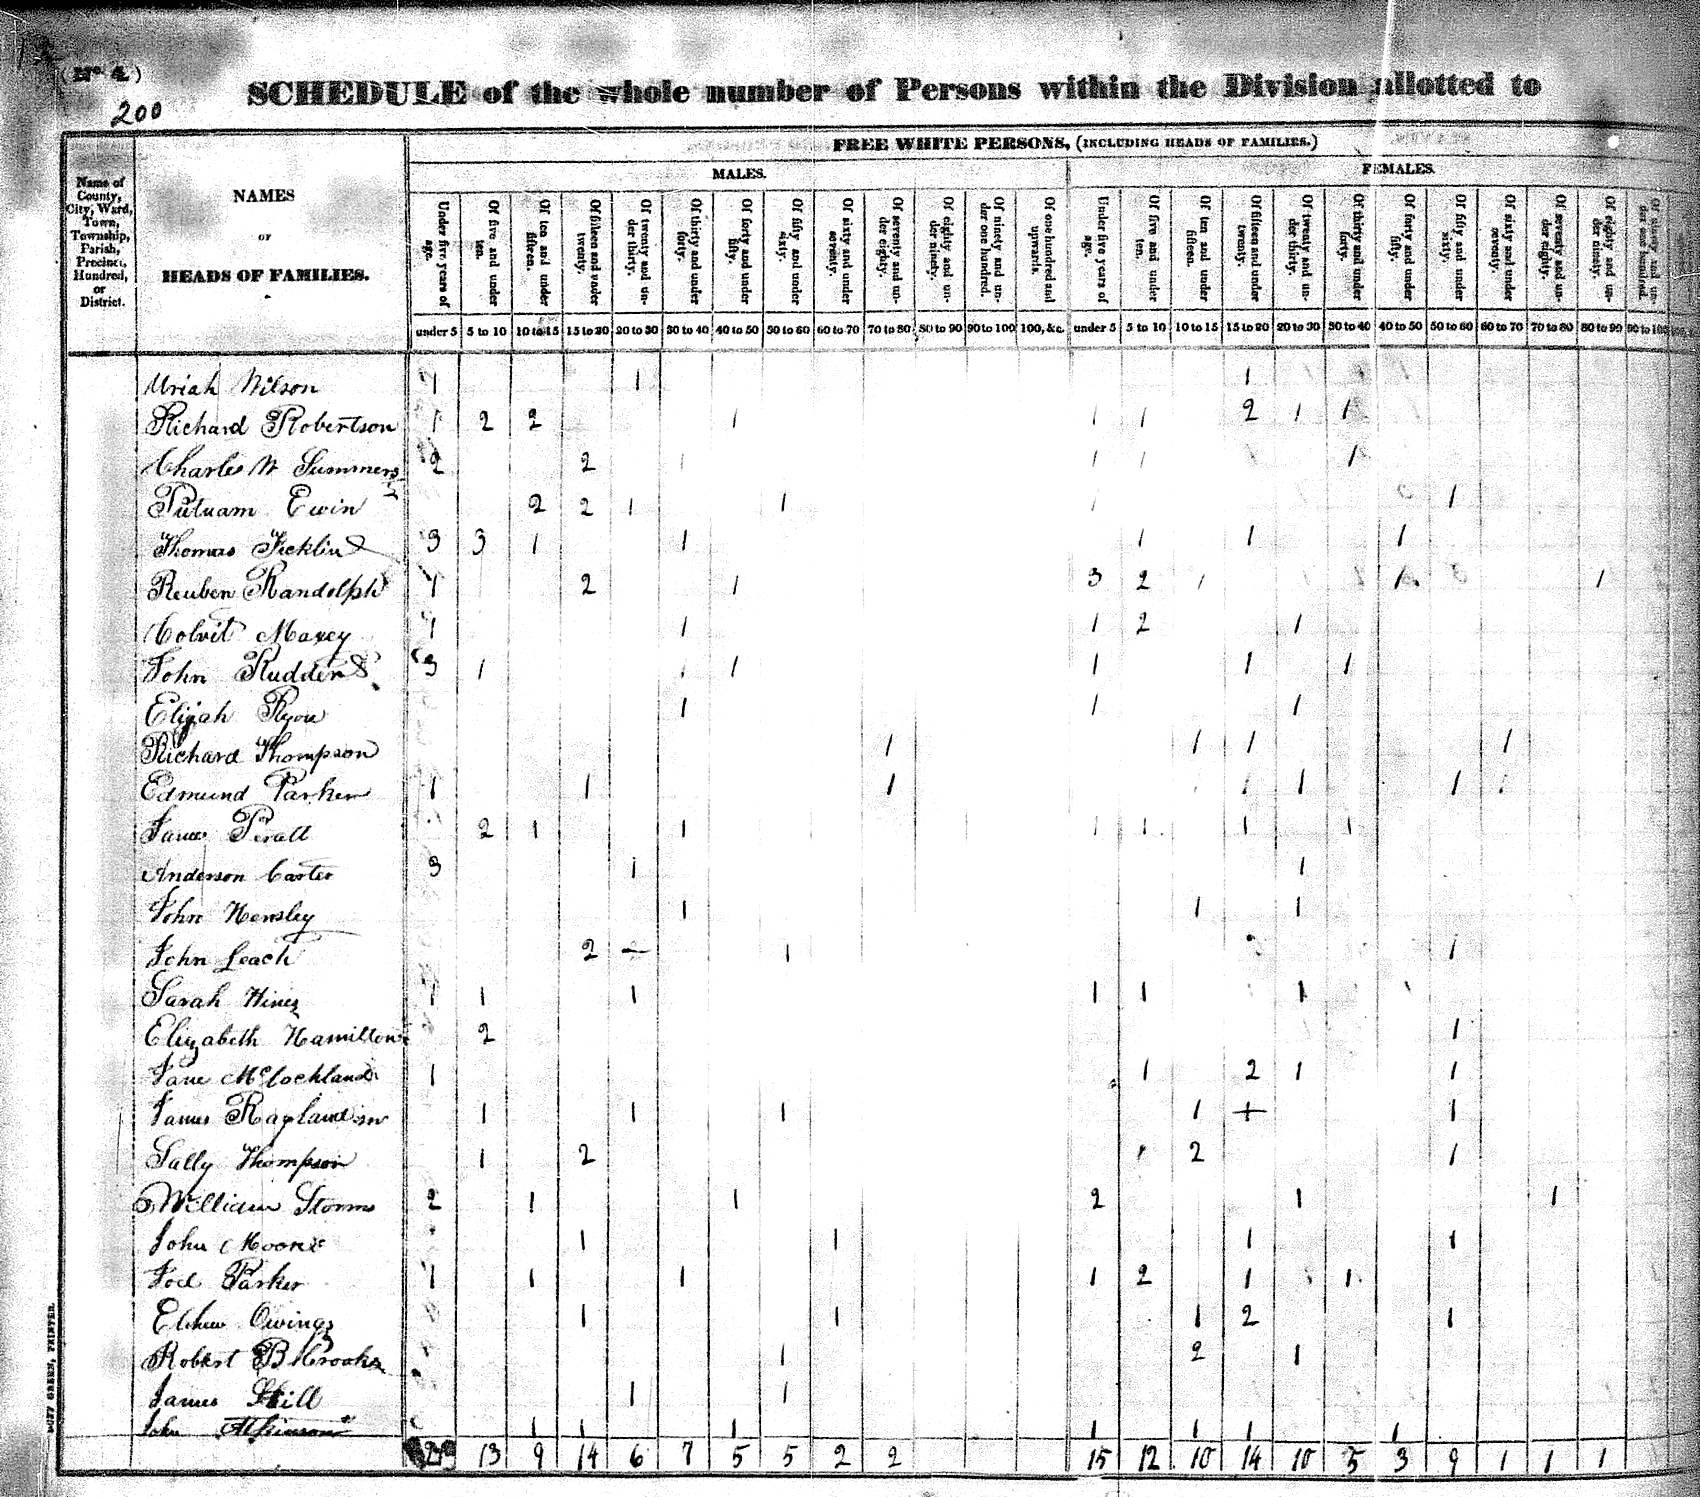 (No 4)
200
SCHEDULE of the whole number of Persons within the Division allotted to
FREE WHITE PERSONS, (INCLUDING HEADS OF FAMILIES.)
MALES. FEMALES.
Name of County, City, Ward, Town, Township, Parish, Precinct, Hundred, or District.
NAMES
or
HEADS OF FAMILIES.
Under five years of age. Of five and under ten. Of ten and under fifteen. Of fifteen and under twenty. Of twenty and under thirty. Of thirty and under forty. Of forty and under fifty. Of fifty and under sixty. Of sixty and under seventy. Of seventy and under eighty. Of eighty and under ninety. Of ninety and under one hundred. Of one hundred and upwards. Under five years of age. Of five and under ten. Of ten and under fifteen. Of fifteen and under twenty. Of twenty and under thirty. Of thirty and under forty. Of forty and under fifty. Of fifty and under sixty. Of sixty and under seventy. Of seventy and under eighty. Of eighty and under ninety. Of ninety and under one hundred.
under 5 5 to 10 10 to 15 15 to 20 20 to 30 30 to 40 40 to 50 50 to 60 60 to 70 70 to 80 80 to 90 90 to 100 100, &c. under 5 5 to 10 10 to 15 15 to 20 20 to 30 30 to 40 40 to 50 50 to 60 60 to 70 70 to 80 80 to 90 90 to 100
Uriah Wilson 1 1 1
Richard Robertson 1 2 2 1 1 1 2 1 1
Charles W Summers 2 2 1 1 1 1
Putnam Ewin 2 2 1 1 1 1
Thomas Ficklin 3 3 1 1 1 1 1
Reuben Randolph 1 2 1 3 2 1 1 1
Colvit Maxey 1 1 1 2 1
John Rudder 3 1 1 1 1 1 1
Elijah Ryon 1 1 1
Richard Thompson 1 1 1 1
Edmund Parker 1 1 1 1 1 1
James 2 1 1 1 1 1 1
Anderson Carter 3 1 1
John Hensley 1 1 1
John Leach 2 1 1
Sarah Hines 1 1 1 1 1 1
Elizabeth Hamilton 2 1
Jane McClockland 1 1 2 1 1
James Ragland 1 1 1 1 1 1
Sally Thompson 1 2 1 2 1
William Storms 2 1 1 2 1 1
John Moore 1 1 1 1
Joel Parker 1 1 1 1 2 1 1
Owings 1 1 1 2 1
Robert B Crooks 1 2 1
James 1 1
John Atkinson 1 1 1 1 1 1 1
13 9 14 6 7 5 5 2 2 15 12 10 14 10 5 3 9 1 1 1
DUFF GREEN, PRINTER.